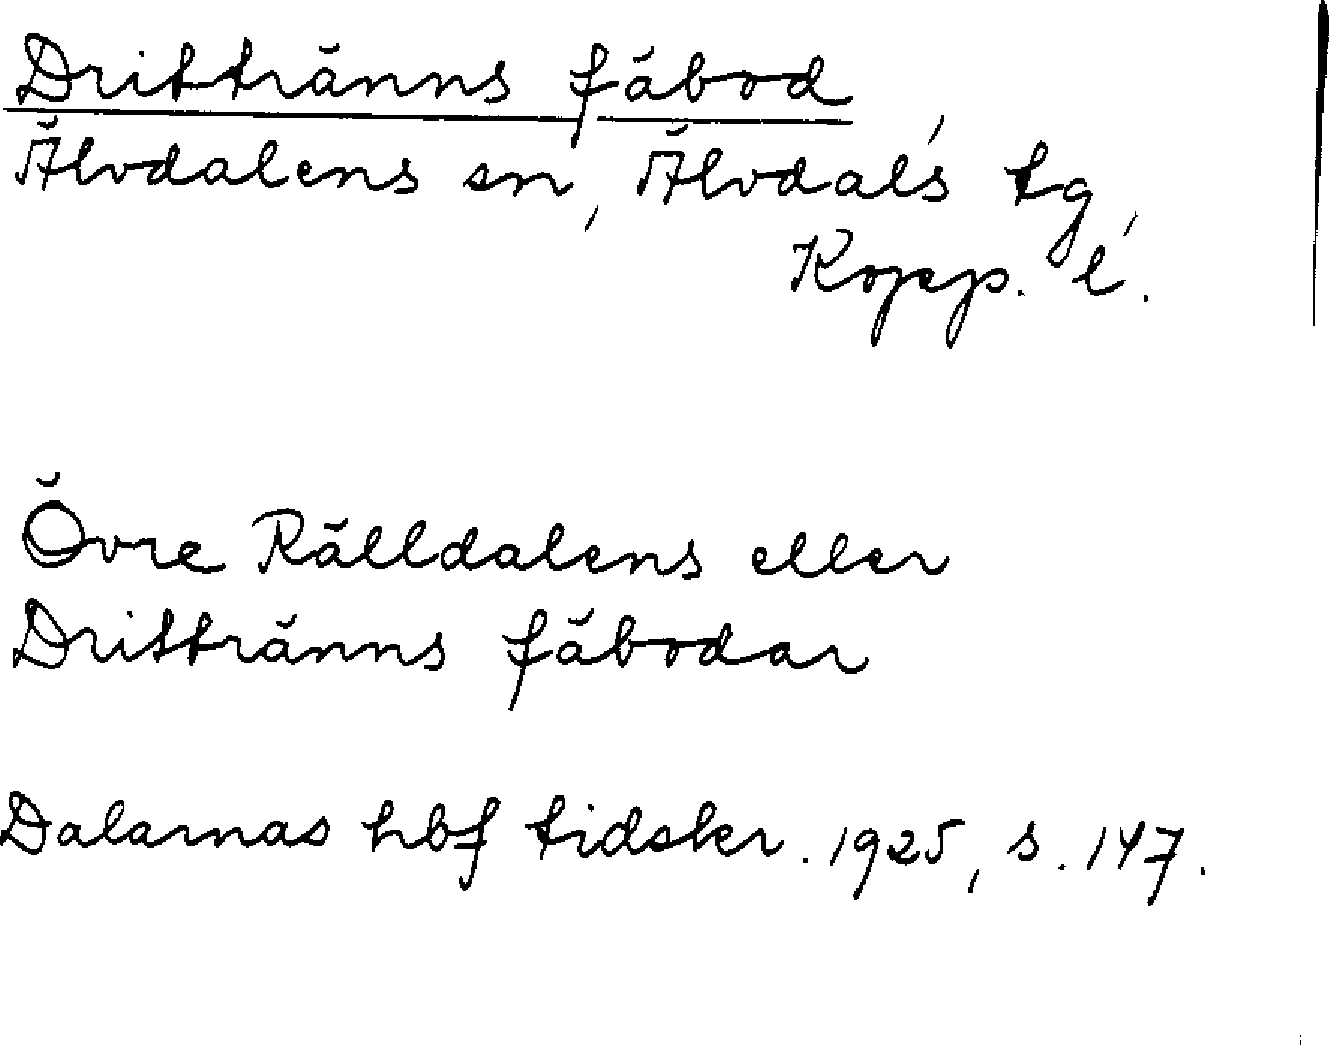 Drittränns fäbod
Älvdalens sn, Älvdals tg,
Kopp. l.
Övre Rälldalens eller
Drittränns fäbodar
Dalarnas hbf tidskr. 1925, s. 147.